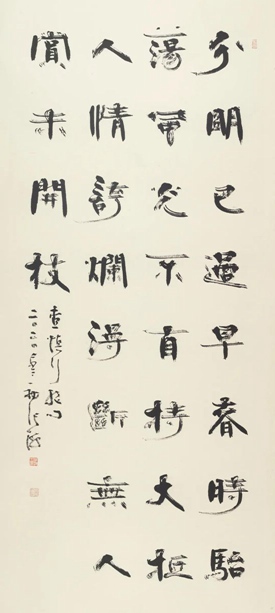 分明已過早春時駘
蕩風光不自持大抵
人情誇爛漫斷無人
賞未開枝
查慎行絕句
二〇二〇